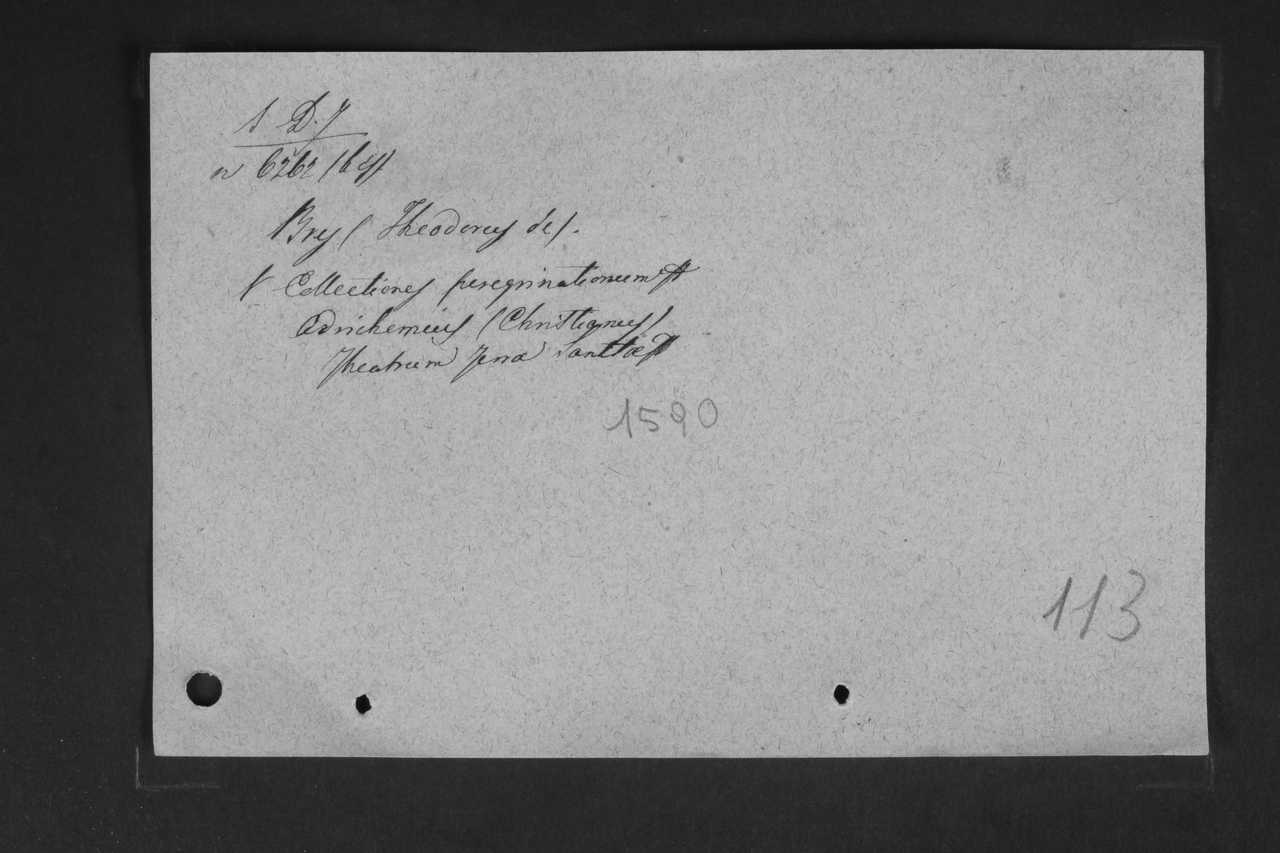 s D. J
n 6262
Bry (Theodorus de).
Collectiones peregrinationum
Adrichemius (Christianus)
Theatrum Terræ Sanctæ
1590
113